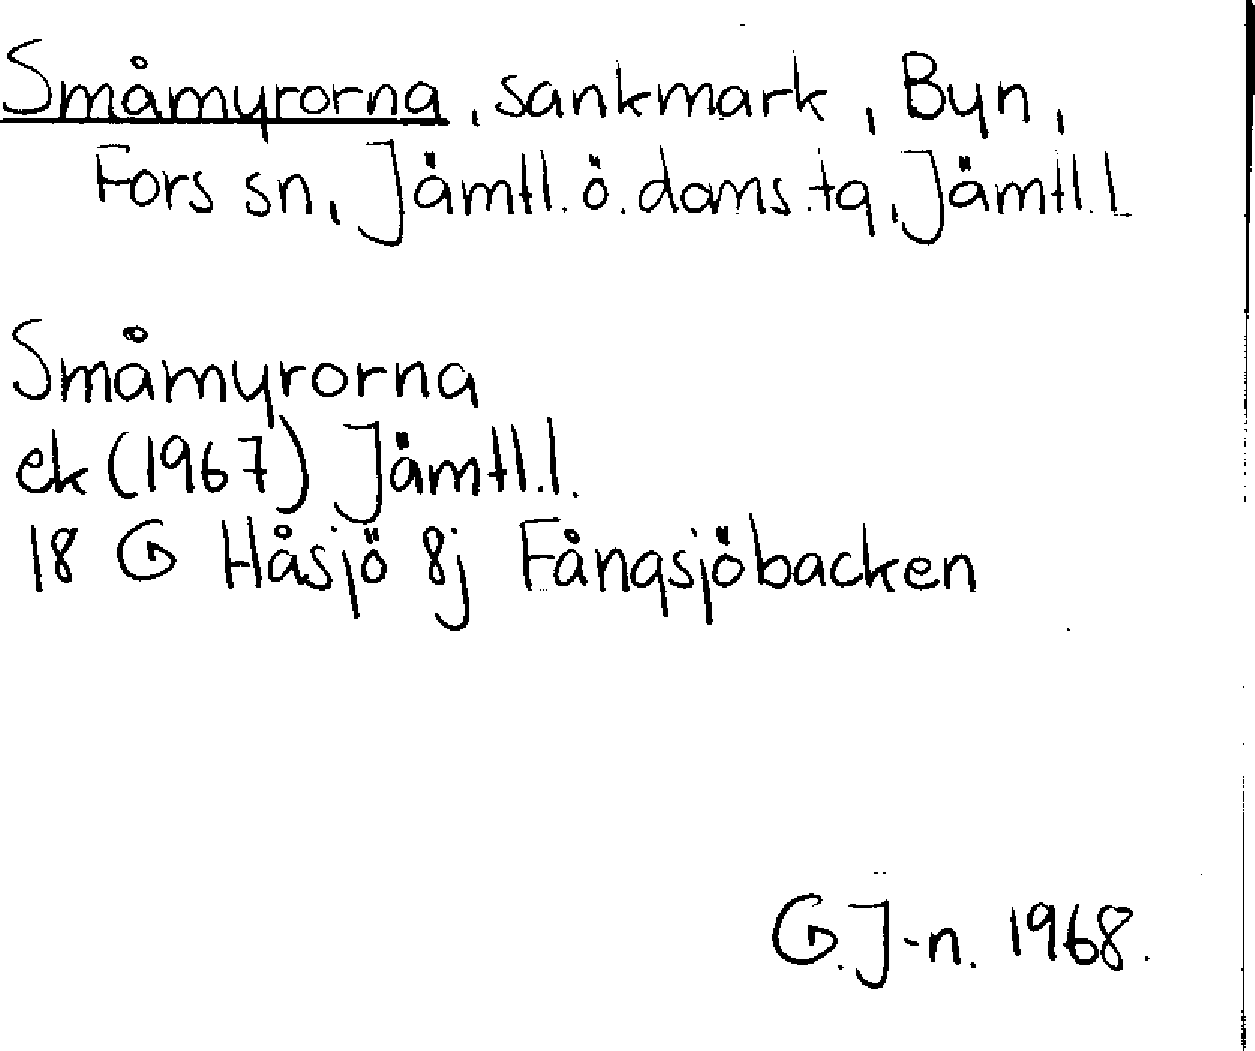 Småmyrorna, sankmark, Byn,
Fors sn, Jämtl. ö. doms.tg, Jämtl.l.
Småmyrorna
ek (1967) Jämtl.l.
18 G Håsjö 8j Fångsjöbacken
G. J-n. 1968.